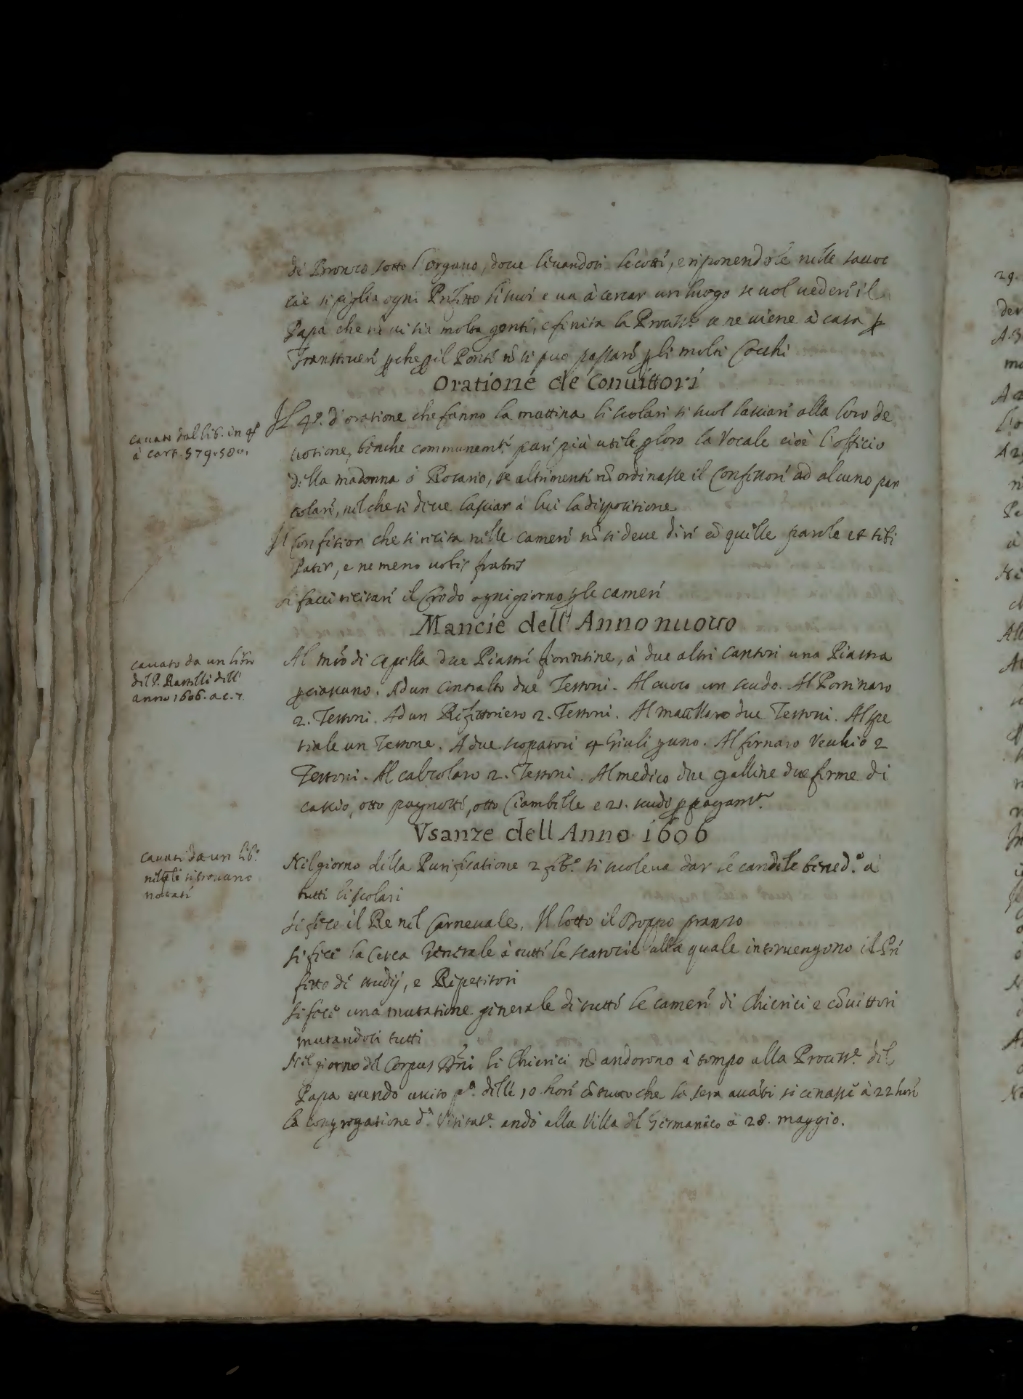 di Bronzo sotto l'Organo, doue leuandosi le cotti, e riponendole nelle saccoc
cie si piglia ogni Prefetto li suoi e ua à cercar un luogo se uol uedere il
Papa che ui sia molta genti, e finita la Process.e se ne uiene à casa p
Transteueri pche p il Ponte nõ si può passare p li molti Cocchi
Orationé de' Conuittori
cauato dal lib. in qº
à cart. 579. 580.
Il 4º. d'oratione che fanno la mattina li scolari si suol lasciare alla loro de
uotione, benche communemt.e pare più utile p loro la Vocale cioè l'officio
della madonna ò Rosario, se altrimenti nõ ordinasse il Confessori ad alcuno par
colari, nel che si deue lasciar à lui la dispositione
Il Confiteor che si recita nelle cameri nõ si deue dire cõ quelle parole et tibi
Pater, e ne meno uobis fratres
si facci recitari il Credo ogni giorno p le cameri
Mancie dell' Anno nuouo
cauato da un libro
del P. dell'
anno 1606. a c. 7.
Al mro di Capella due Piastre fiorentine, à due altri Cantori una Piastra
p ciascuno. Ad un Contralto due Testoni. Al cuoco un scudo. Al Portinaro
2. Testoni. Ad un Refettoriero 2. Testoni. Al macellaro due Testoni. Al spe
tiale un Testone. A due scopatori 4 Giulij p uno. Al fornaro Vecchio 2
Testoni. Al calzolaro 2. Testoni. Al medico due galline due forme di
cascio, otto pagnotti, otto Ciambelle e 21. scudo p pagamt.o
Vsanze dell Anno 1606
cauati da un lib.o
nel q̃le si trouano
notati
Nel giorno della Purificatione 2 feb.o si soleua dar le candele bened.e à
tutti li scolari
si fece il Re nel Carneuale, Il lotto il Doppo pranzo
si fece la Cerca Generale à tutti le scatocie alla quale interuengono il Pre
fetto di studij, e Ripetitori
si fece una mutatione generale di tutti le cameri di Chierici e cõuittori
mutandoli tutti
Nel giorno del Corpus Dñi li Chierici nõ andorono à tempo alla Process.e del
Papa essendo uscito p.a delle 10 hori cõ tutto che la sera auãti si cenassi à 22 hori
La congregatione d.a Visitat.e andò alla Villa del Germanico à 28. maggio.